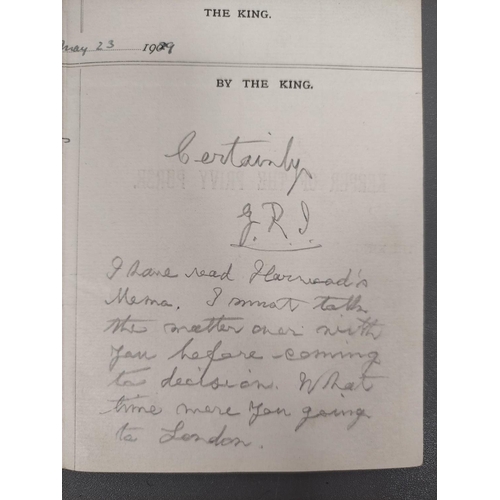 THE KING.
May 23 1909
BY THE KING.
Certainly.
G.R.I.
I have read Harwood's
Memo. I must talk
the matter over with
you before coming
to decision. What
time were you going
to London.